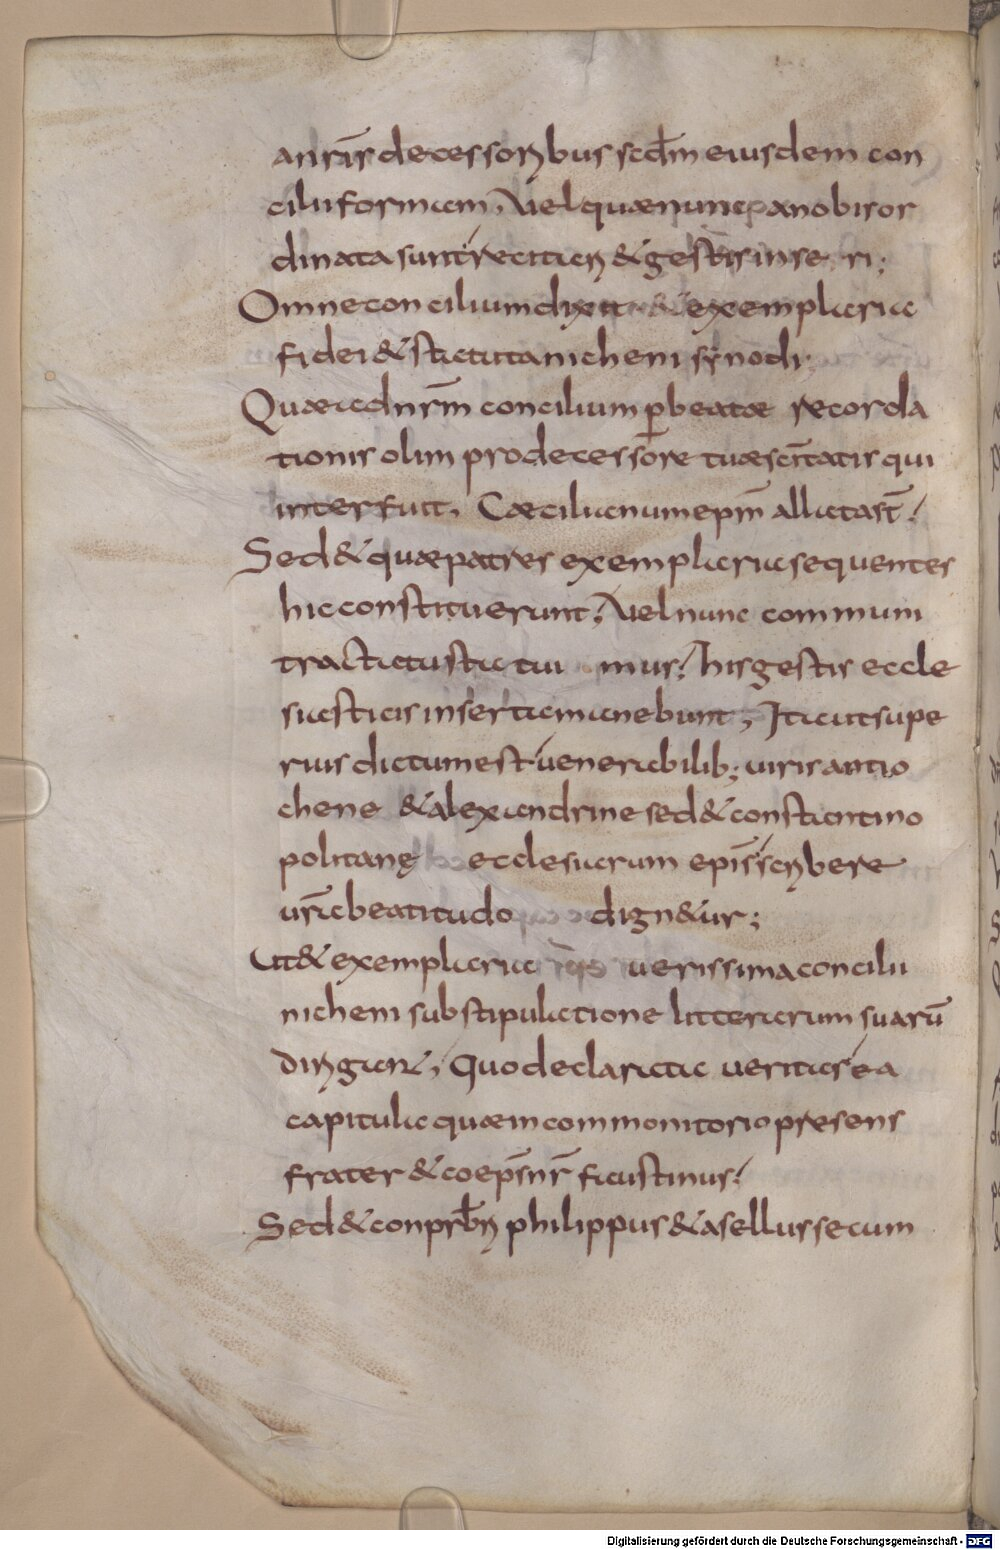 a nr̄is decessoribus scdm̄ eiusdem con
cilii formam, Vel quae nunc a nobis or
dinata sunt recitari & gestis inseri;
Omne concilium dixit & exemplaria
fidei & statuta nicheni synodi;
Quae ad nr̄m concilium ꝑ beatae recorda
tionis olim prodecessore tuae sc̄itatis qui
interfuit, Caecilianum ep̄m allata st̄;
Sed & quae patres exemplaria sequentes
hic constituerunt; Vel nunc communi
tractatu statuimus; his gestis eccle
siasticis inserta manebunt; Ita ut supe
rius dictum est venerabilib; viris antio
chene & alexandrine sed & constantino
politanę ecclesiarum epis̄ scribere
ur̄a beatitudo dign&ur;
Ut & exemplaria verissima concilii
nicheni sub stipulatione litterarum suarū
dirigant; Quo declarata veritas ea
capitula quae in commonitorio presens
frater & coep̄s nr̄ faustinus;
Sed & conprb̄ri philippus & asellus secum
Digitalisierung gefördert durch die Deutsche Forschungsgemeinschaft - DFG